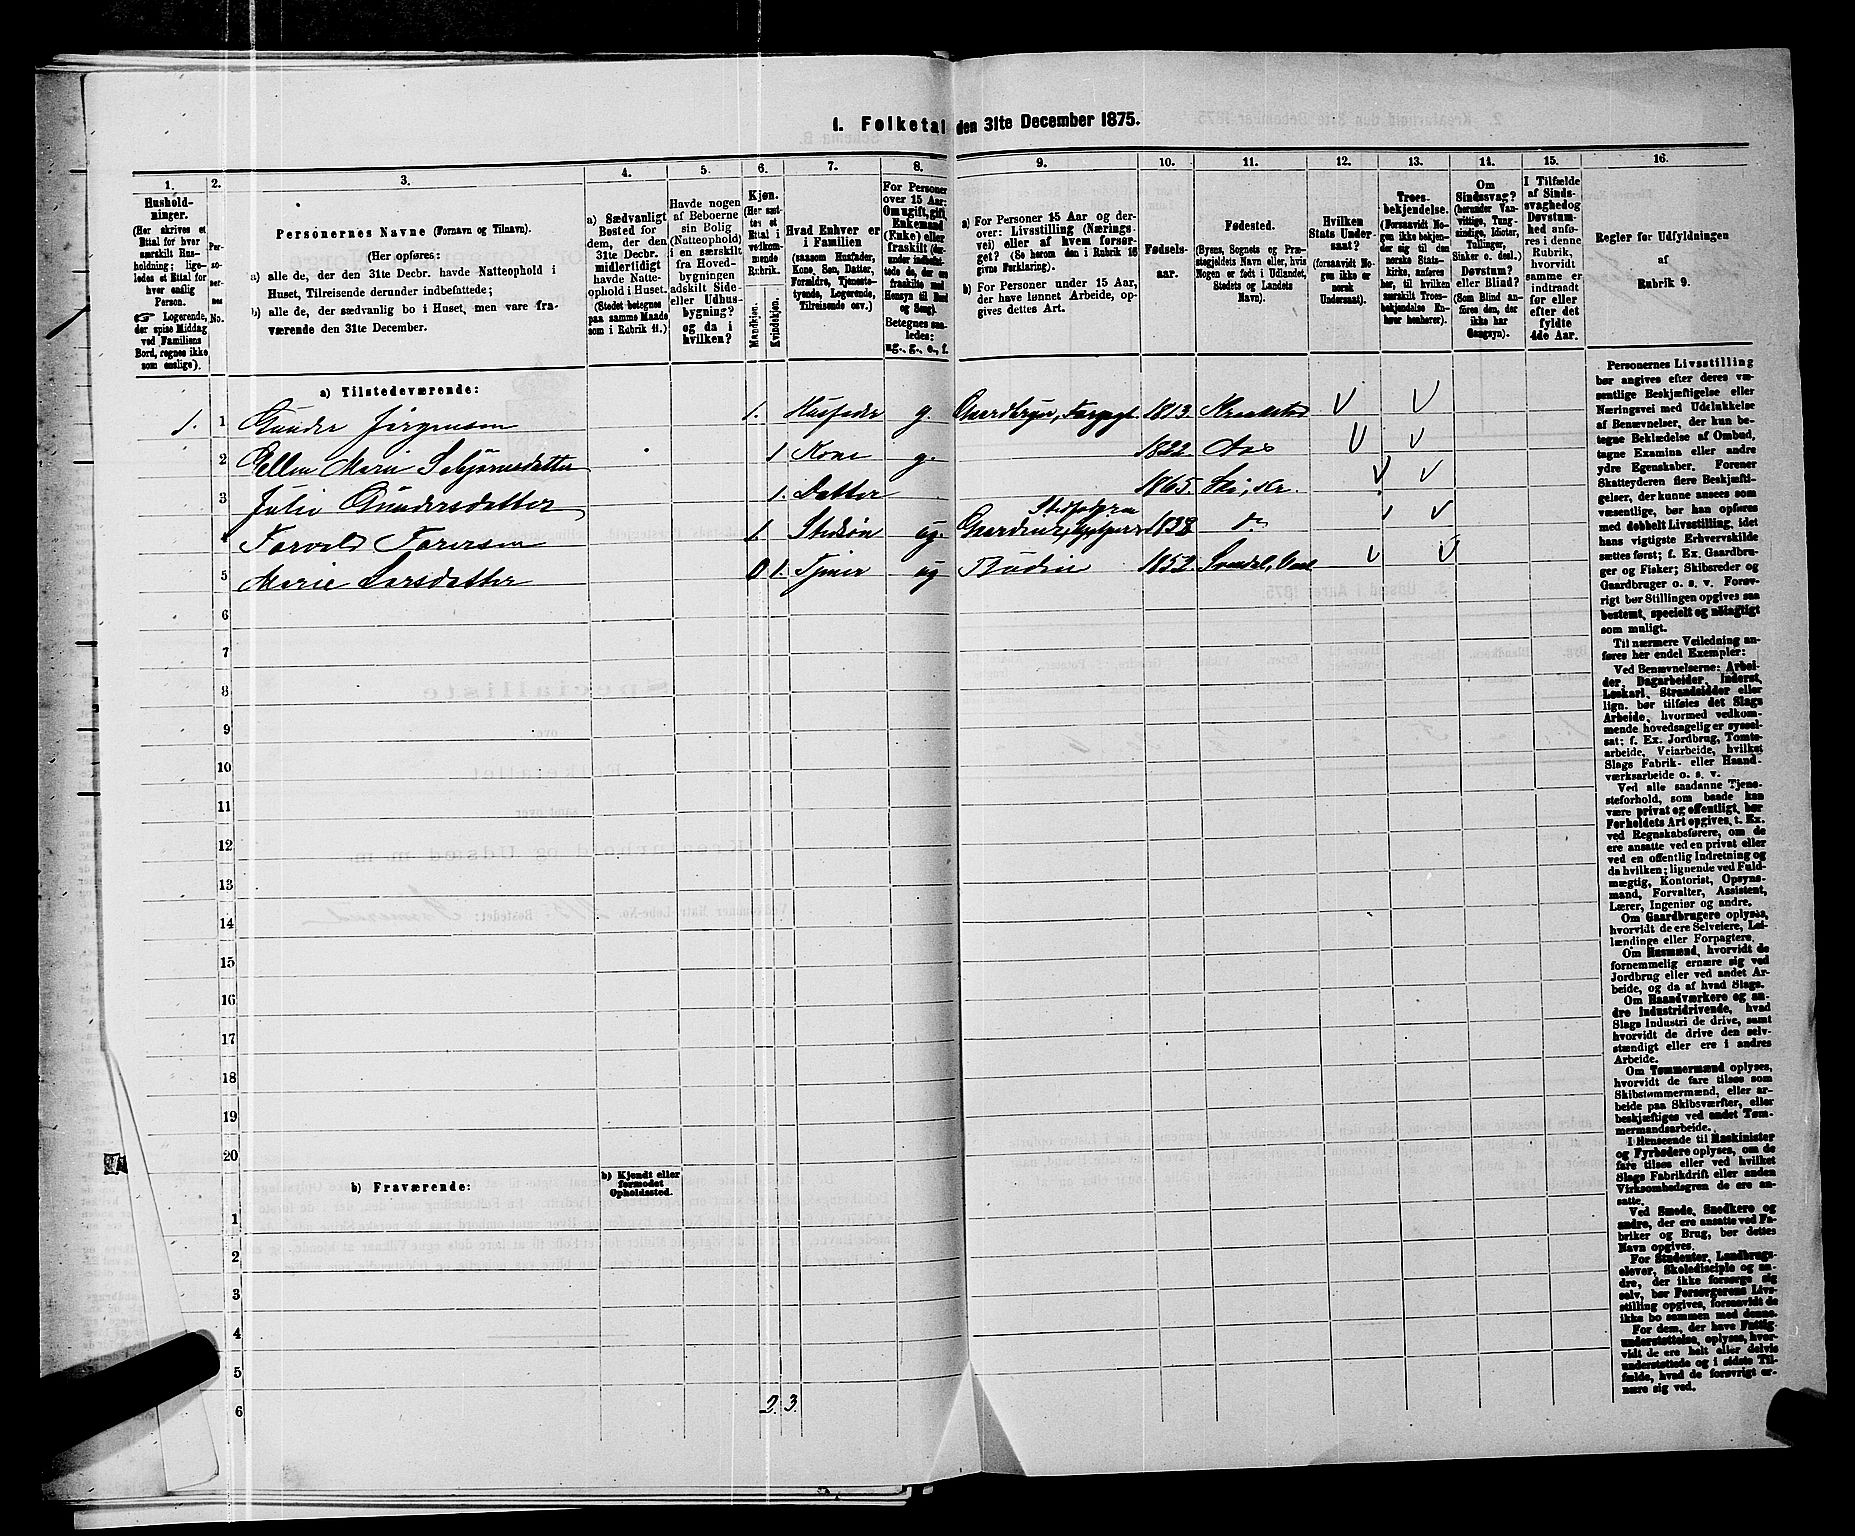 1. Folketal den 31te December 1875.
1. 2. 3. 4. 5. 6. 7. 8. 9. 10. 11. 12. 13. 14. 15. 16.
Hushold-
ninger.
(Her skrives et
Ettal for hver
særskilt Hus-
holdning; lige-
ledes et Ettal for
hver enslig
Person.
Logerende,
der spise Middag
ved Familiens
Bord, regnes ikke
som enslige).
Per-
so-
ner-
nes
No.
Personernes Navne (Fornavn og Tilnavn).
(Her opføres:
a) alle de, der den 31te Decbr. havde Natteophold i
Huset, Tilreisende derunder indbefattede;
b) alle de, der sædvanlig bo i Huset, men vare fra-
værende den 31te December.
a) Sædvanligt
Bosted for
dem, der den
31te Decbr.
midlertidigt
havde Natte-
ophold i Huset.
(Stedet betegnes
paa samme Maade
som i Rubrik 11.)
Havde nogen
af Beboerne
sin Bolig
(Natteophold)
i en særskilt
fra Hoved-
bygningen
adskilt Side-
eller Udhus-
bygning?
og da i
hvilken?
Kjøn.
(Her sæt-
tes et
Ettal i
vedkom-
mende
Rubrik.
Mandkjøn.
Kvindekjøn.
Hvad Enhver er
i Familien
(saasom Husfader,
Kone, Søn, Datter,
Forældre, Tjeneste-
tyende, Logerende,
Tilreisende osv.)
For Personer
over 15 Aar:
Om ugift, gift,
Enkemand
(Enke) eller
fraskilt
Betegnes saa-
ledes:
ug., g., e., f.
a) For Personer 15 Aar og der-
over: Livsstilling (Nærings-
vei) eller af hvem forsør-
get? (Se herom den i Rubrik 16
givne Forklaring).
b) For Personer under 15 Aar,
der have lønnet Arbeide, op-
gives dettes Art.
Fødsels-
aar.
Fødested.
(Byens, Sognets og Præ-
stegjeldets Navn eller, hvis
Nogen er født i Udlandet,
Stedets og Landets
Navn).
Hvilken
Stats Under-
saat?
(forsaavidt No-
gen ikke er
norsk
Undersaat).
Troes-
bekjendelse.
(Forsaavidt No-
gen ikke bekjen-
der sig til den
norske Stats-
kirke, anføres
her, til hvilken
særskilt Troes-
bekjendelse En-
hver henhører).
Om
Sindssvag?
(herunder Van-
vittige, Tung-
sindige, Idioter,
Tullinger,
Sinker o. desl.)
Døvstum?
eller Blind?
(Som Blind an-
føres den, der
ikke har
Gangsyn).
I Tilfælde
af Sinds-
svaghed og
Døvstum-
hed anfø-
res i denne
Rubrik,
hvorvidt
samme er
indtraadt
før eller
efter det
fyldte
4de Aar.
Regler for Udfyldningen
af
Rubrik 9.
a) Tilstedeværende:
1. 1 Gunder Jørgensen 1. Husfader g. Gaardbruger, 1813. Kraakstad V V
2 Ellen Marie 1 Kone g. 1822 Aas V V
3 Julie Gundersdatter 1. Datter 1865. Ski, Kr. V V
4 Torvald 1. Stedsøn ug. 1838 do V V
5 Marie Larsdatter 0 1. Tjener ug Budeie 1852 V V
6
7
8
9
10
11
12
13
14
15
16
17
18
19
20
b) Fraværende:
b) Kjendt eller
formodet
Opholdssted.
1
2
3
4
5
6
2. 3.
Personernes Livsstilling
bør angives efter deres væ-
sentlige Beskjæftigelse eller
Næringsvei med Udelukkelse
af Benævnelser, der kun be-
tegne Beklædelse af Ombud,
tagne Examina eller andre
ydre Egenskaber. Forener
Skatteyderen flere Beskjæfti-
gelser, der kunne ansees som
væsentlige, bør han opføres
med dobbelt Livsstilling, idet
hans vigtigste Erhvervskilde
sættes først; f. Ex. Gaardbru-
ger og Fisker; Skibsreder og
Gaardbruger o. s. v. Forøv-
rigt bør Stillingen opgives saa
bestemt, specielt og nøiagtigt
som muligt.
Til nærmere Veiledning an-
føres her endel Exempler:
Ved Benævnelserne: Arbei-
der, Dagarbeider, Inderst,
Løskarl, Strandsidder eller
lign. bør tilføies det Slags
Arbeide, hvormed vedkom-
mende hovedsagelig er syssel-
sat; f. Ex. Jordbrug, Tomte-
arbeide, Veiarbeide, hvilket
Slags Fabrik- eller Haand-
værksarbeide o. s. v.
Ved alle saadanne Tjene-
steforhold, som baade kan
være privat og offentligt, bør
Forholdets Art opgives, t. Ex.
ved Regnskabsførere, om de
ere ansatte ved en privat eller
ved en offentlig Indretning og
da hvilken; lignende ved Fuld-
mægtig, Kontorist, Opsyns-
mand, Forvalter, Assistent,
Lærer, Ingeniør og andre.
Om Gaardbrugere oplyses,
hvorvidt de ere Selveiere, Lei-
lændinge eller Forpagtere.
Om Husmænd, hvorvidt de
fornemmelig ernære sig ved
Jordbrug eller ved andet Ar-
beide, og da af hvad Slags.
Om Haandværkere og an-
dre Industridrivende, hvad
Slags Industri de drive, samt
hvorvidt de drive den selv-
stændigt eller ere i andres
Arbeide.
Om Tømmermænd oplyses,
hvorvidt de fare tilsøs som
Skibstømmermænd, eller ar-
beide paa Skibsværfter, eller
beskjæftiges ved andet Tøm-
mermandsarbeide.
I Henseende til Maskinister
og Fyrbødere oplyses, om de
fare tilsøs eller ved hvilket
Slags Fabrikdrift eller anden
Virksomhedsgren de ere an-
satte.
Ved Smede, Snedkere og
andre, der ere ansatte ved Fa-
briker og Brug, bør dettes
Navn opgives.
For Studenter, Landbrugs-
elever, Skoledisciple og an-
dre, der ikke forsørge sig
selv, bør Forsørgerens Livs-
stilling opgives, forsaavidt de
ikke bo sammen med denne.
For dem, der have Fattig-
understøttelse, oplyses, hvor-
vidt de ere helt eller delvis
understøttede og i sidste Til-
fælde, hvad de forøvrigt er-
nære sig ved.